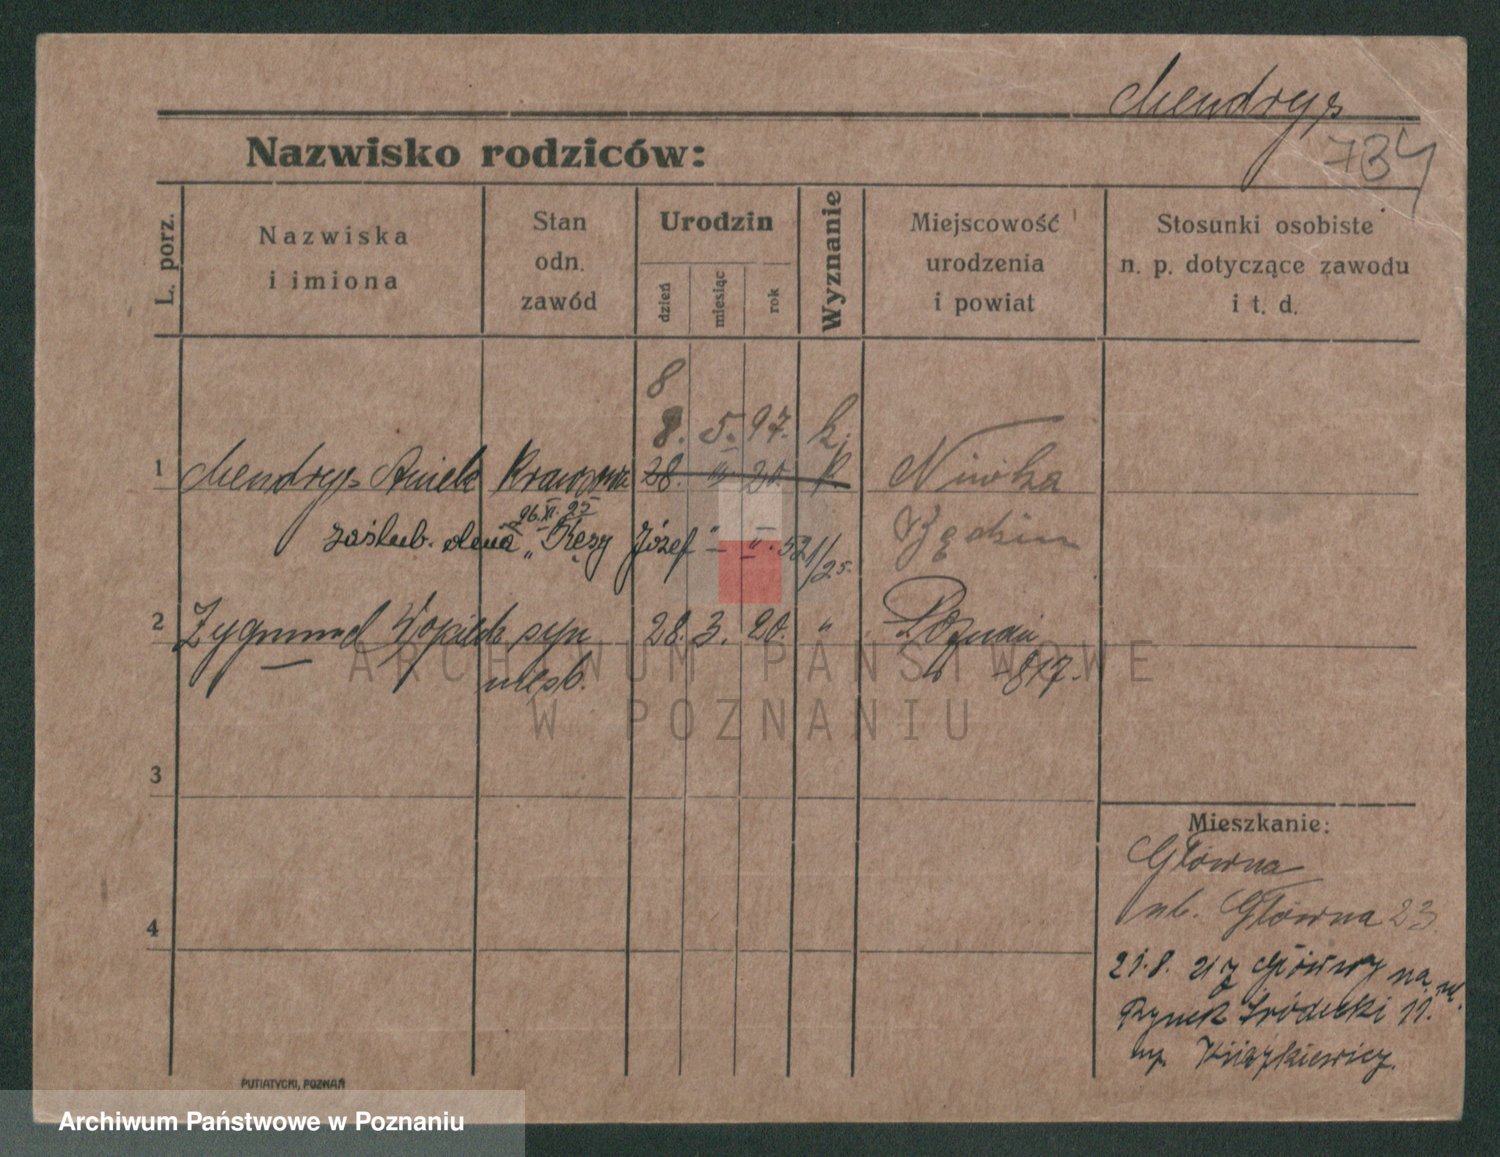 Mendrys
734
Nazwisko rodziców:
L. porz.
Nazwiska
i imiona
Stan
odn.
zawód
Urodzin
dzień
miesiąc
rok
Wyznanie
Miejscowość
urodzenia
i powiat
Stosunki osobiste
n. p. dotyczące zawodu
i t. d.
8
8. 5. 97. k.
1 Mendrys Aniela Krawcowa 28. 20. k. Niwka
26.XI.25
zaślub. Józef Będzin
2 Zygmund syn 28. 3. 20. " Poznań
nieśl. 817.
ARCHIWUM PAŃSTWOWE
W POZNANIU
3
4
Mieszkanie:
Główna
ul. Główna 23
21.8. 21 z Główny na
Rynek Śródecki 11.
PUTIATYCKI, POZNAŃ
Archiwum Państwowe w Poznaniu